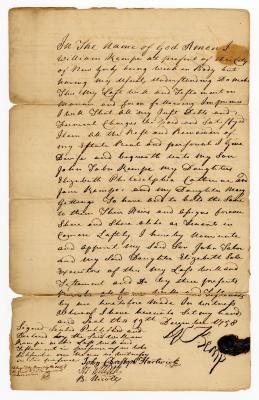 In The Name of God Amen I
William Kempe at present of the City
of New York being weak in Body but
having my perfect Understanding Do make
This my Last will and Testament in
Manner and form following Imprimis
I will That all my Just Debts and
Funeral Charges be paid and Satisfyed
Item all the Rest and Remainder of
my Estate Real and personal I give
Devise and bequeath unto my Son
John Tabor Kempe my Daughters
Elizabeth Philadelphia Catherine and
Jane Kempe and my Daughter Mary
To have and to hold the same
to them Their Heirs and assigns forever
Share and Share alike as Tenants in
Common Lastly I hereby nominate
and appoint my Said Son John Tabor
and my Said Daughter Elizabeth Sole
Executors of this my Last will and
Testament and Do by these presents
Revoke all former wills and Testaments
by me heretofore Made In witness
whereof I have hereunto Set my hand
and Seal this 19th December 1758
Signed Sealed Published and
Declared by the said William
Kempe
John Christoph Hartwick
B. Nicoll